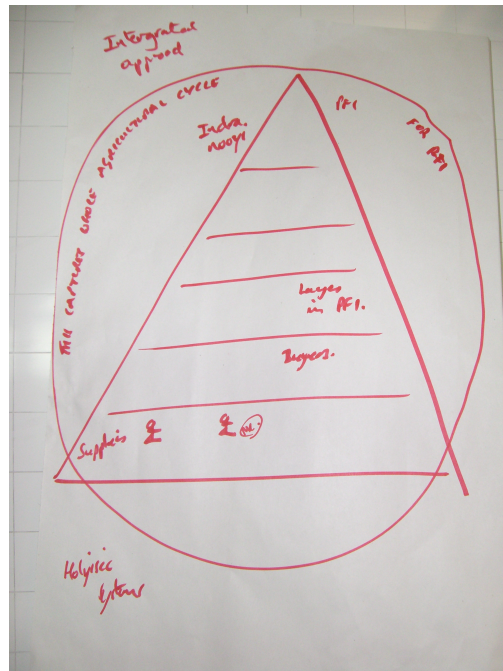 Intergrated
approad
THIS CAPTURES WHOLE AGRICULTURAL CYCLE
FOR PFI
PFI
Indra
nooyi
Layers
in PFI.
Buyers.
Suppliers £ £
Holyisic
systems